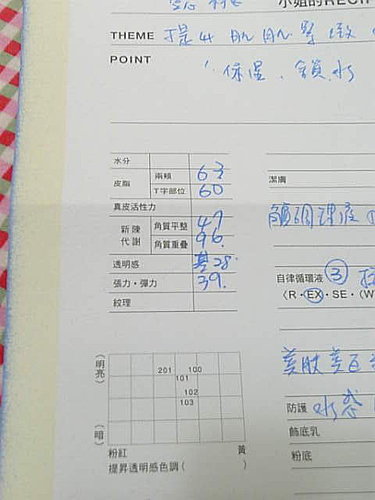 小姐的RECIP
THEME 提升肌肉緊緻
POINT
保溼、鎖水
水分
皮脂 兩頰 63
T字部位 60
真皮活性力
新陳代謝 角質平整 47
角質重疊 96.
透明感 基28.
張力・彈力 39.
紋理
潔膚
調理液
自律循環液 ③
〈R・EX・SE・〈W
美肤美白
防護 水
飾底乳
粉底
〈明亮〉
201 100
101
102
103
〈暗〉
粉紅 黃
提昇透明感色調( )